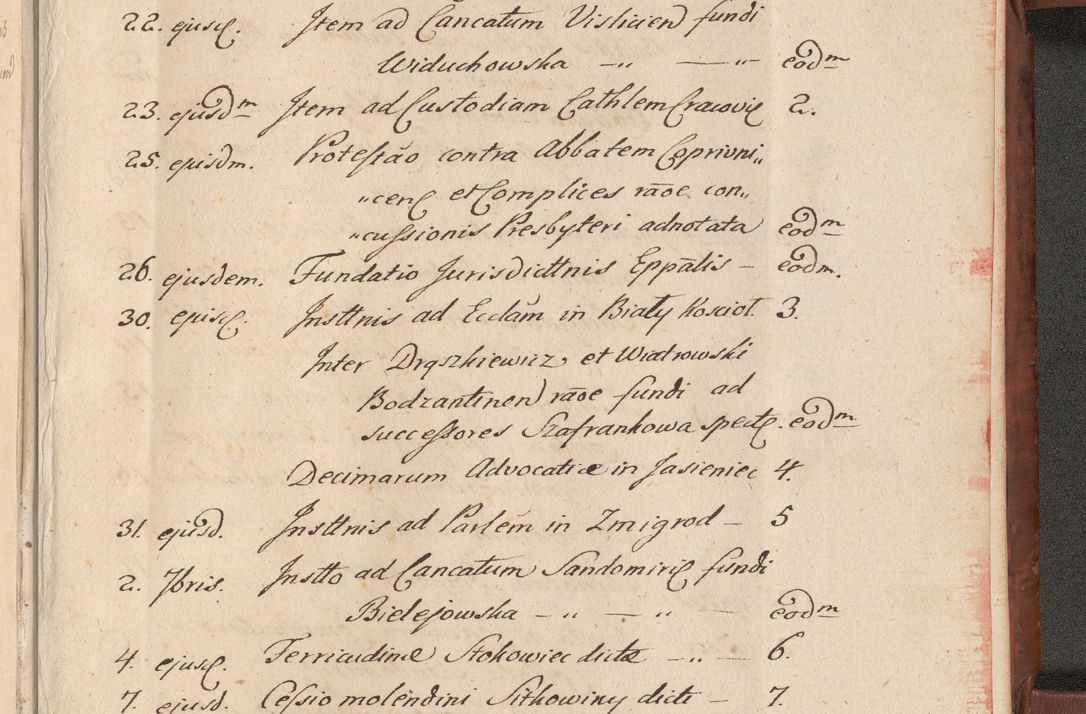 22. ejusd. Item ad Cancatum Vislicien fundi
Widuchowska — „ — „ eodm
23. ejusdm Item ad Custodiam Cathlem Cracovie 2.
25. ejusdm. Protestão contra Abbatem Coprivni„
„cens et Complices rãoe con„
„cussionis Presbyteri adnotata eodm
26. ejusdem. Fundatio Jurisdidtnis Eppãlis — eodm.
30. ejusd. Insttnis ad Ecclam in Biały Kosciol 3.
Inter Drąszkiewicz et Wiatrowski
Bodzantinen rãoe fundi ad
successores Szafrankowa spectt. eodm
Decimarum Advocatiæ in Jasieniec 4.
31. ejusd. Insttnis ad Parlem in Zmigrod — 5
2. 7bris. Instto ad Cancatum Sandomirie fundi
Bielejowska — „ — „ — eodm
4. ejusd. Terricudinæ Stokowiec dictæ — „ — 6.
7. ejusd. Cessio molendini Sitkowiny dicti — 7.